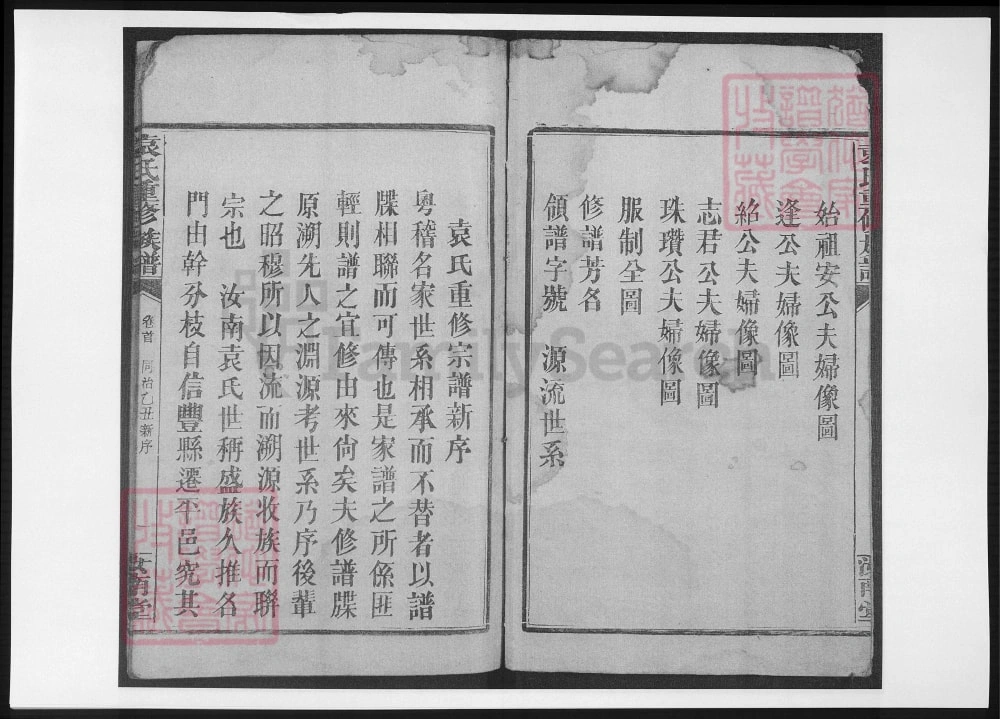 始祖安公夫婦像圖
逢公夫婦像圖
紹公夫婦像圖
志君公夫婦像圖
珠瓚公夫婦像圖
服制全圖
修譜芳名
領譜字號 源流世系
汝南堂
袁氏重修宗譜新序
粵稽名家世系相承而不替者以譜
牒相聯而可傳也是家譜之所係匪
輕則譜之宜修由來尙矣夫修譜牒
原溯先人之淵源考世系乃序後輩
之昭穆所以因流而溯源收族而聯
宗也 汝南袁氏世稱盛族久推名
門由幹分枝自信豐縣遷平邑究其
袁氏重修族譜 卷首 同治乙丑新序 汝南堂
FamilySearch